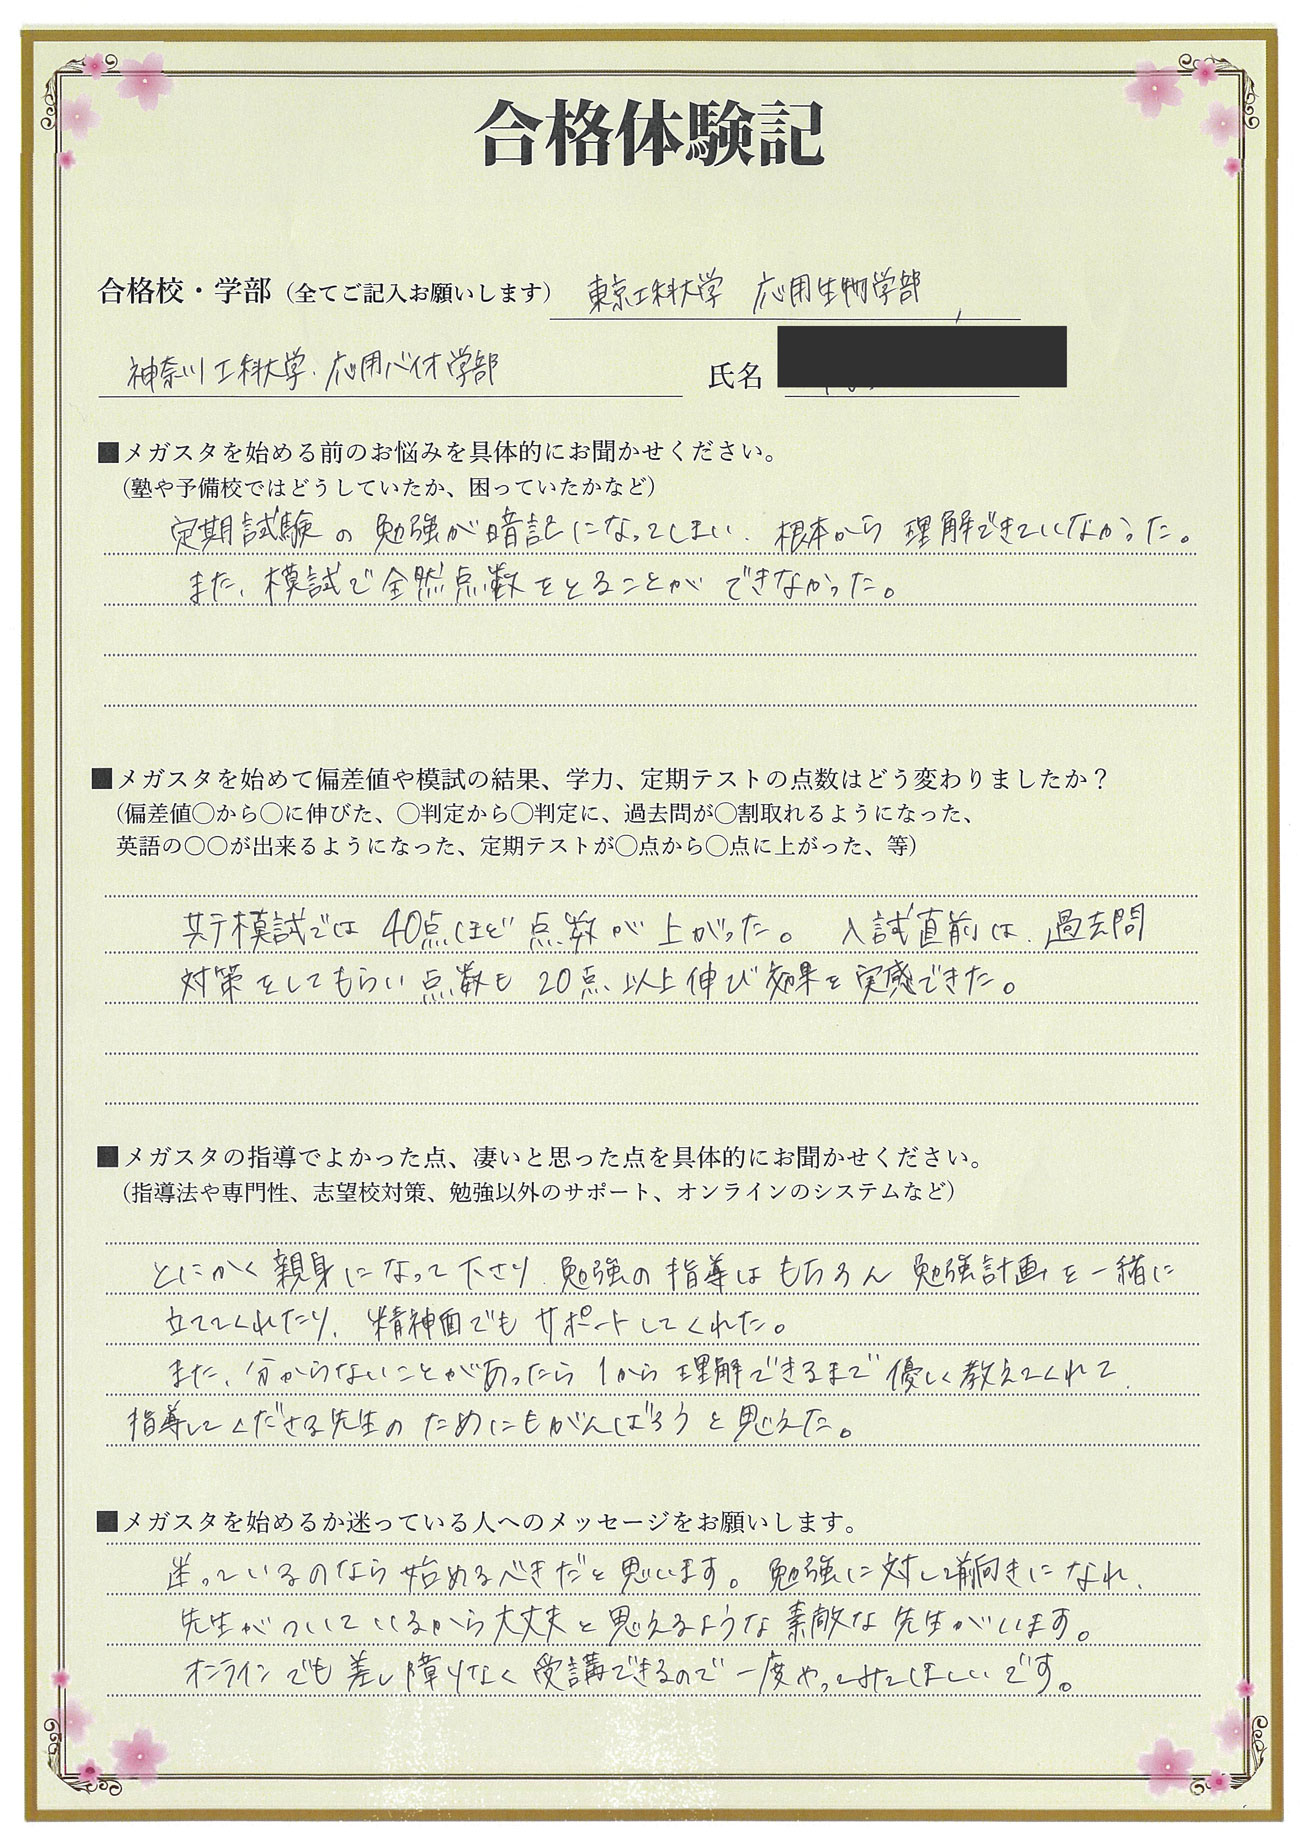 合格体験記
合格校・学部（全てご記入お願いします） 東京工科大学 応用生物学部
神奈川工科大学.応用バイオ学部 氏名
■メガスタを始める前のお悩みを具体的にお聞かせください。
（塾や予備校ではどうしていたか、困っていたかなど）
定期試験の勉強が暗記になってしまい、根本から理解できていなかった。
また、模試で全然点数をとることができなかった。
■メガスタを始めて偏差値や模試の結果、学力、定期テストの点数はどう変わりましたか？
（偏差値〇から〇に伸びた、〇判定から〇判定に、過去問が〇割取れるようになった、
英語の〇〇が出来るようになった、定期テストが〇点から〇点に上がった、等）
共テ模試では40点ほど点数が上がった。入試直前は、過去問
対策をしてもらい点数も20点以上伸び効果を実感できた。
■メガスタの指導でよかった点、凄いと思った点を具体的にお聞かせください。
（指導法や専門性、志望校対策、勉強以外のサポート、オンラインのシステムなど）
とにかく親身になって下さり、勉強の指導はもちろん勉強計画を一緒に
立ててくれたり、精神面でもサポートしてくれた。
また、分からないことがあったら1から理解できるまで優しく教えてくれて、
指導してくださる先生のためにもがんばろうと思えた。
■メガスタを始めるか迷っている人へのメッセージをお願いします。
迷っているのなら始めるべきだと思います。勉強に対して前向きになれ、
先生がついているから大丈夫と思えるような素敵な先生がいます。
オンラインでも差し障りなく受講できるので一度やってみてほしいです。